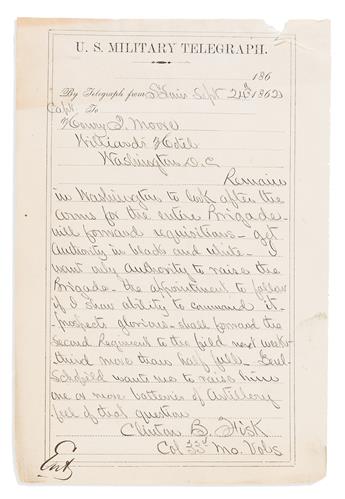 U. S. MILITARY TELEGRAPH.
186
By Telegraph from St Louis Sept 24th 1862
Capt. To
Henry I. Moore
Willards Hotel
Washington D.C
Remain
in Washington to look after the
arms for the entire Brigade-
will forward requisitions- get
Authority in black and white- I
want only Authority to raise the
Brigade- the appointment to follow
if I show ability to command it-
prospects glorious- shall forward the
second Regiment to the field next week-
third more than half full- Genl
Schofield wants me to raise him
one or more batteries of Artillery
feel of that question
Clinton B. Fisk
Col 33d Mo. Vols